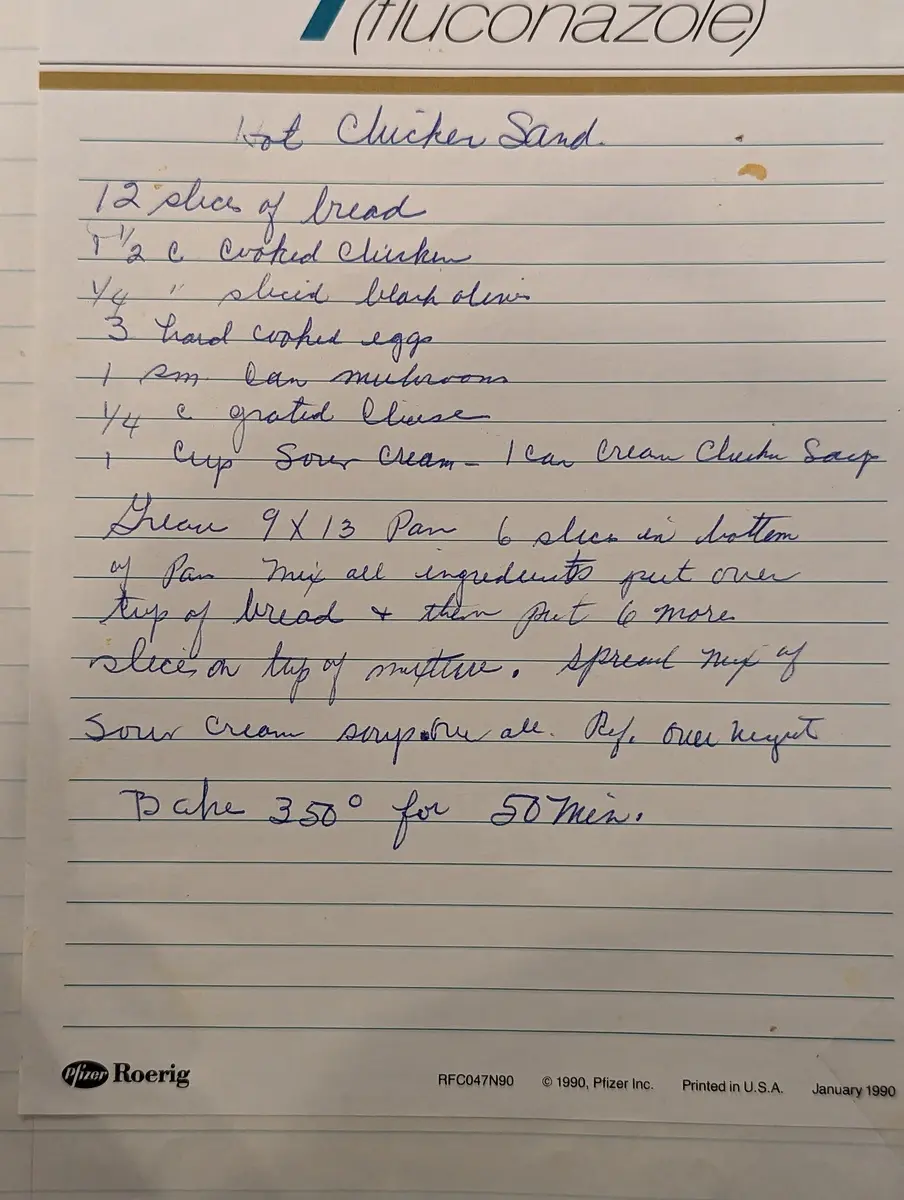 (fluconazole)
Hot Chicken Sand.
12 slices of bread
1 1/2 c cooked chicken
1/4 " sliced black olives
3 hard cooked eggs
1 sm. can mushrooms
1/4 c grated cheese
1 cup sour cream - 1 can cream chicken soup
Grease 9 X 13 Pan 6 slices in bottom
of Pan Mix all ingredients put over
top of bread & then put 6 more
slices on top of mixture. Spread mix of
Sour Cream soup over all. Ref. over night
Bake 350° for 50 Min.
Pfizer Roerig
RFC047N90 © 1990, Pfizer Inc. Printed in U.S.A. January 1990